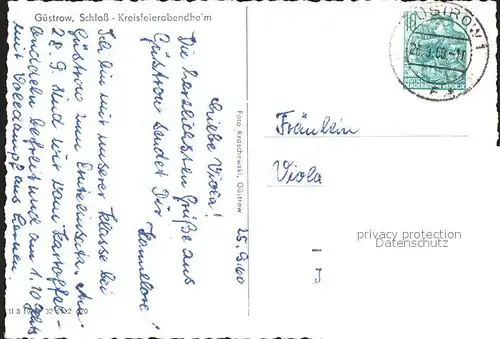 Güstrow, Schloß - Kreisfeierabendheim
25.9.60
Liebe Viola!
Die herzlichsten Grüße aus
Güstrow sendet Dir
Hannelore!
Ich bin mit unserer Klasse bei
Güstrow zum Ernteeinsatz. Am
28.9. sind wir vom Kartoffel-
buddeln befreit und am 1.10. geht's
mit Volldampf ans Lernen.
Foto Kraschewski, Güstrow
GÜSTROW 1
DEUTSCHE
DEMOKRATISCHE REPUBLIK
10
Fräulein
Viola
privacy protection
Datenschutz